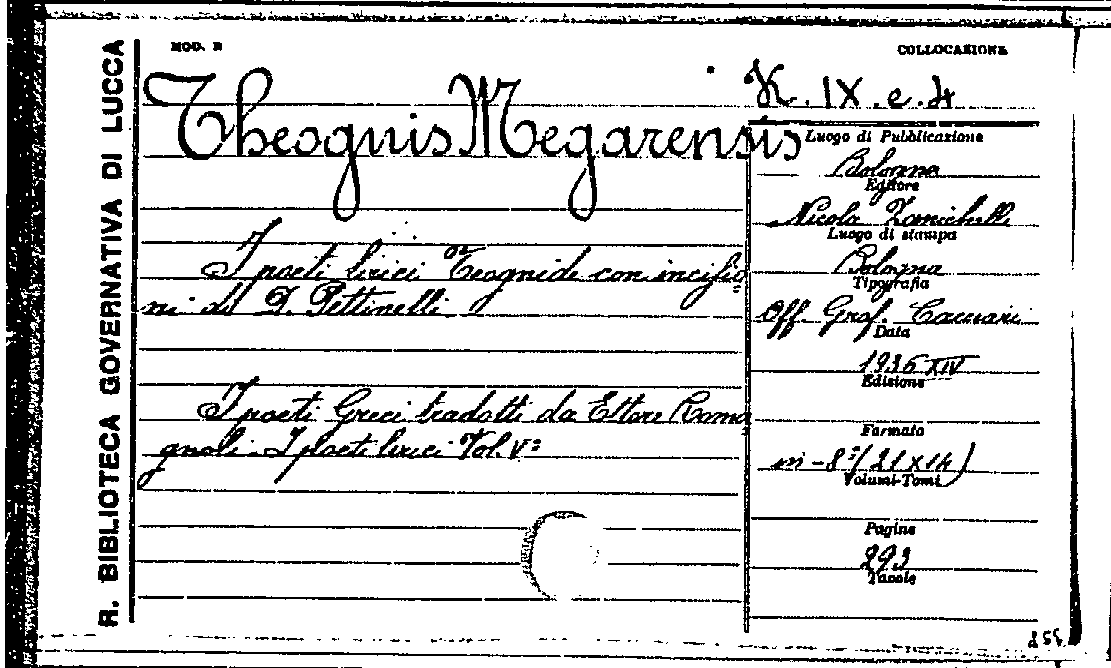 R. BIBLIOTECA GOVERNATIVA DI LUCCA
MOD. B
COLLOCAZIONE
K. IX. e. 4
Theognis Megarensis
Luogo di Pubblicazione
Bologna
Editore
Nicola Zanichelli
Luogo di stampa
Bologna
Tipografia
Off. Graf. Cacciari
Data
1936 XIV
Edizione
Formato
in-8º (21x14)
Volumi-Tomi
Pagine
293
Tavole
I poeti lirici Teognide con incisio
ni di D. Pettinelli
I poeti Greci tradotti da Ettore Roma
gnoli - I poeti lirici Vol. Vº